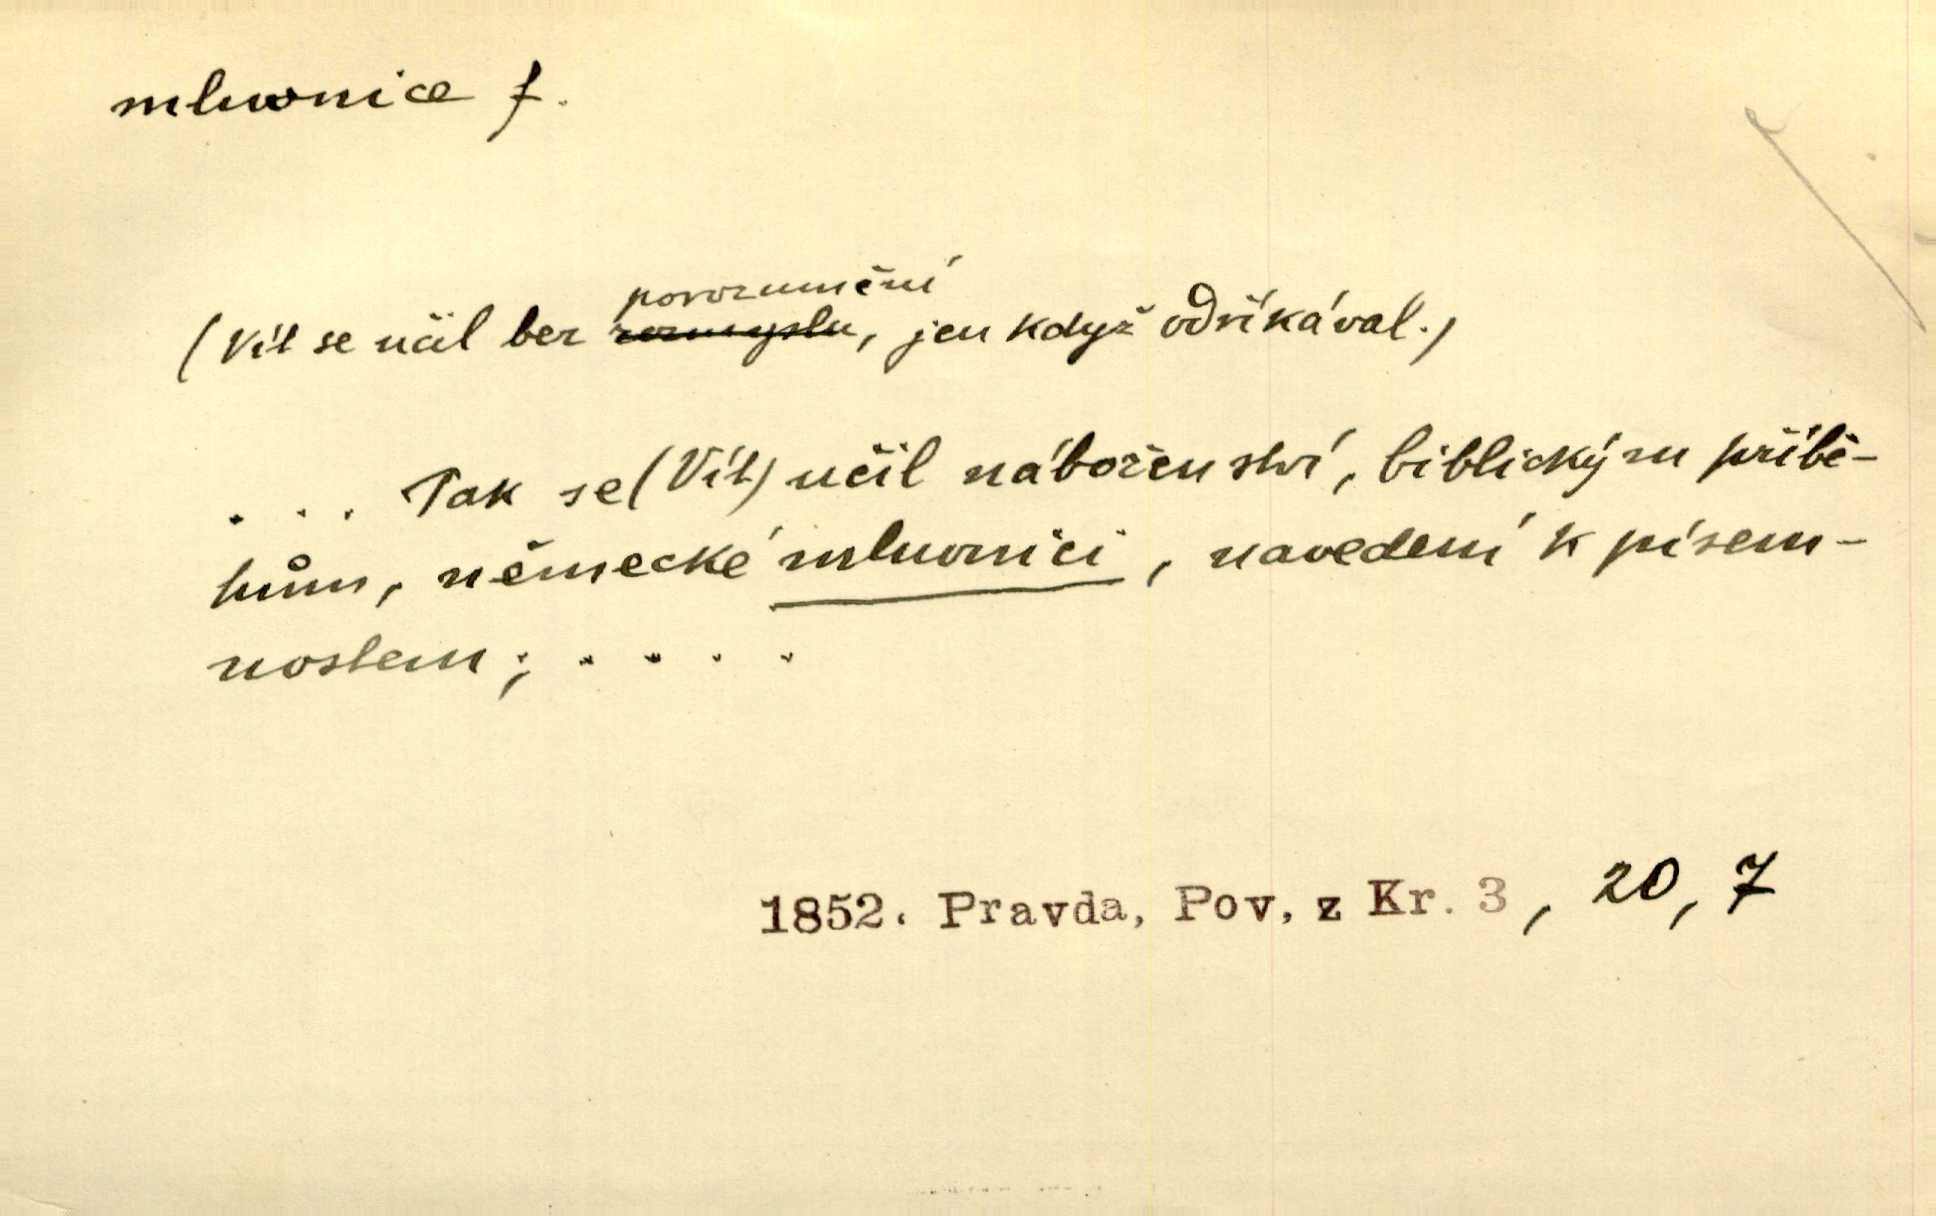 mluvnice f.
porozumění
(Vít se učil bez rozmyslu, jen když odříkával.)
. . . Tak se (Vít) učil náboženství, biblickým příbě-
hům, německé mluvnici, navedení k písem-
nostem; . . . .
1852. Pravda, Pov. z Kr. 3, 20, 7